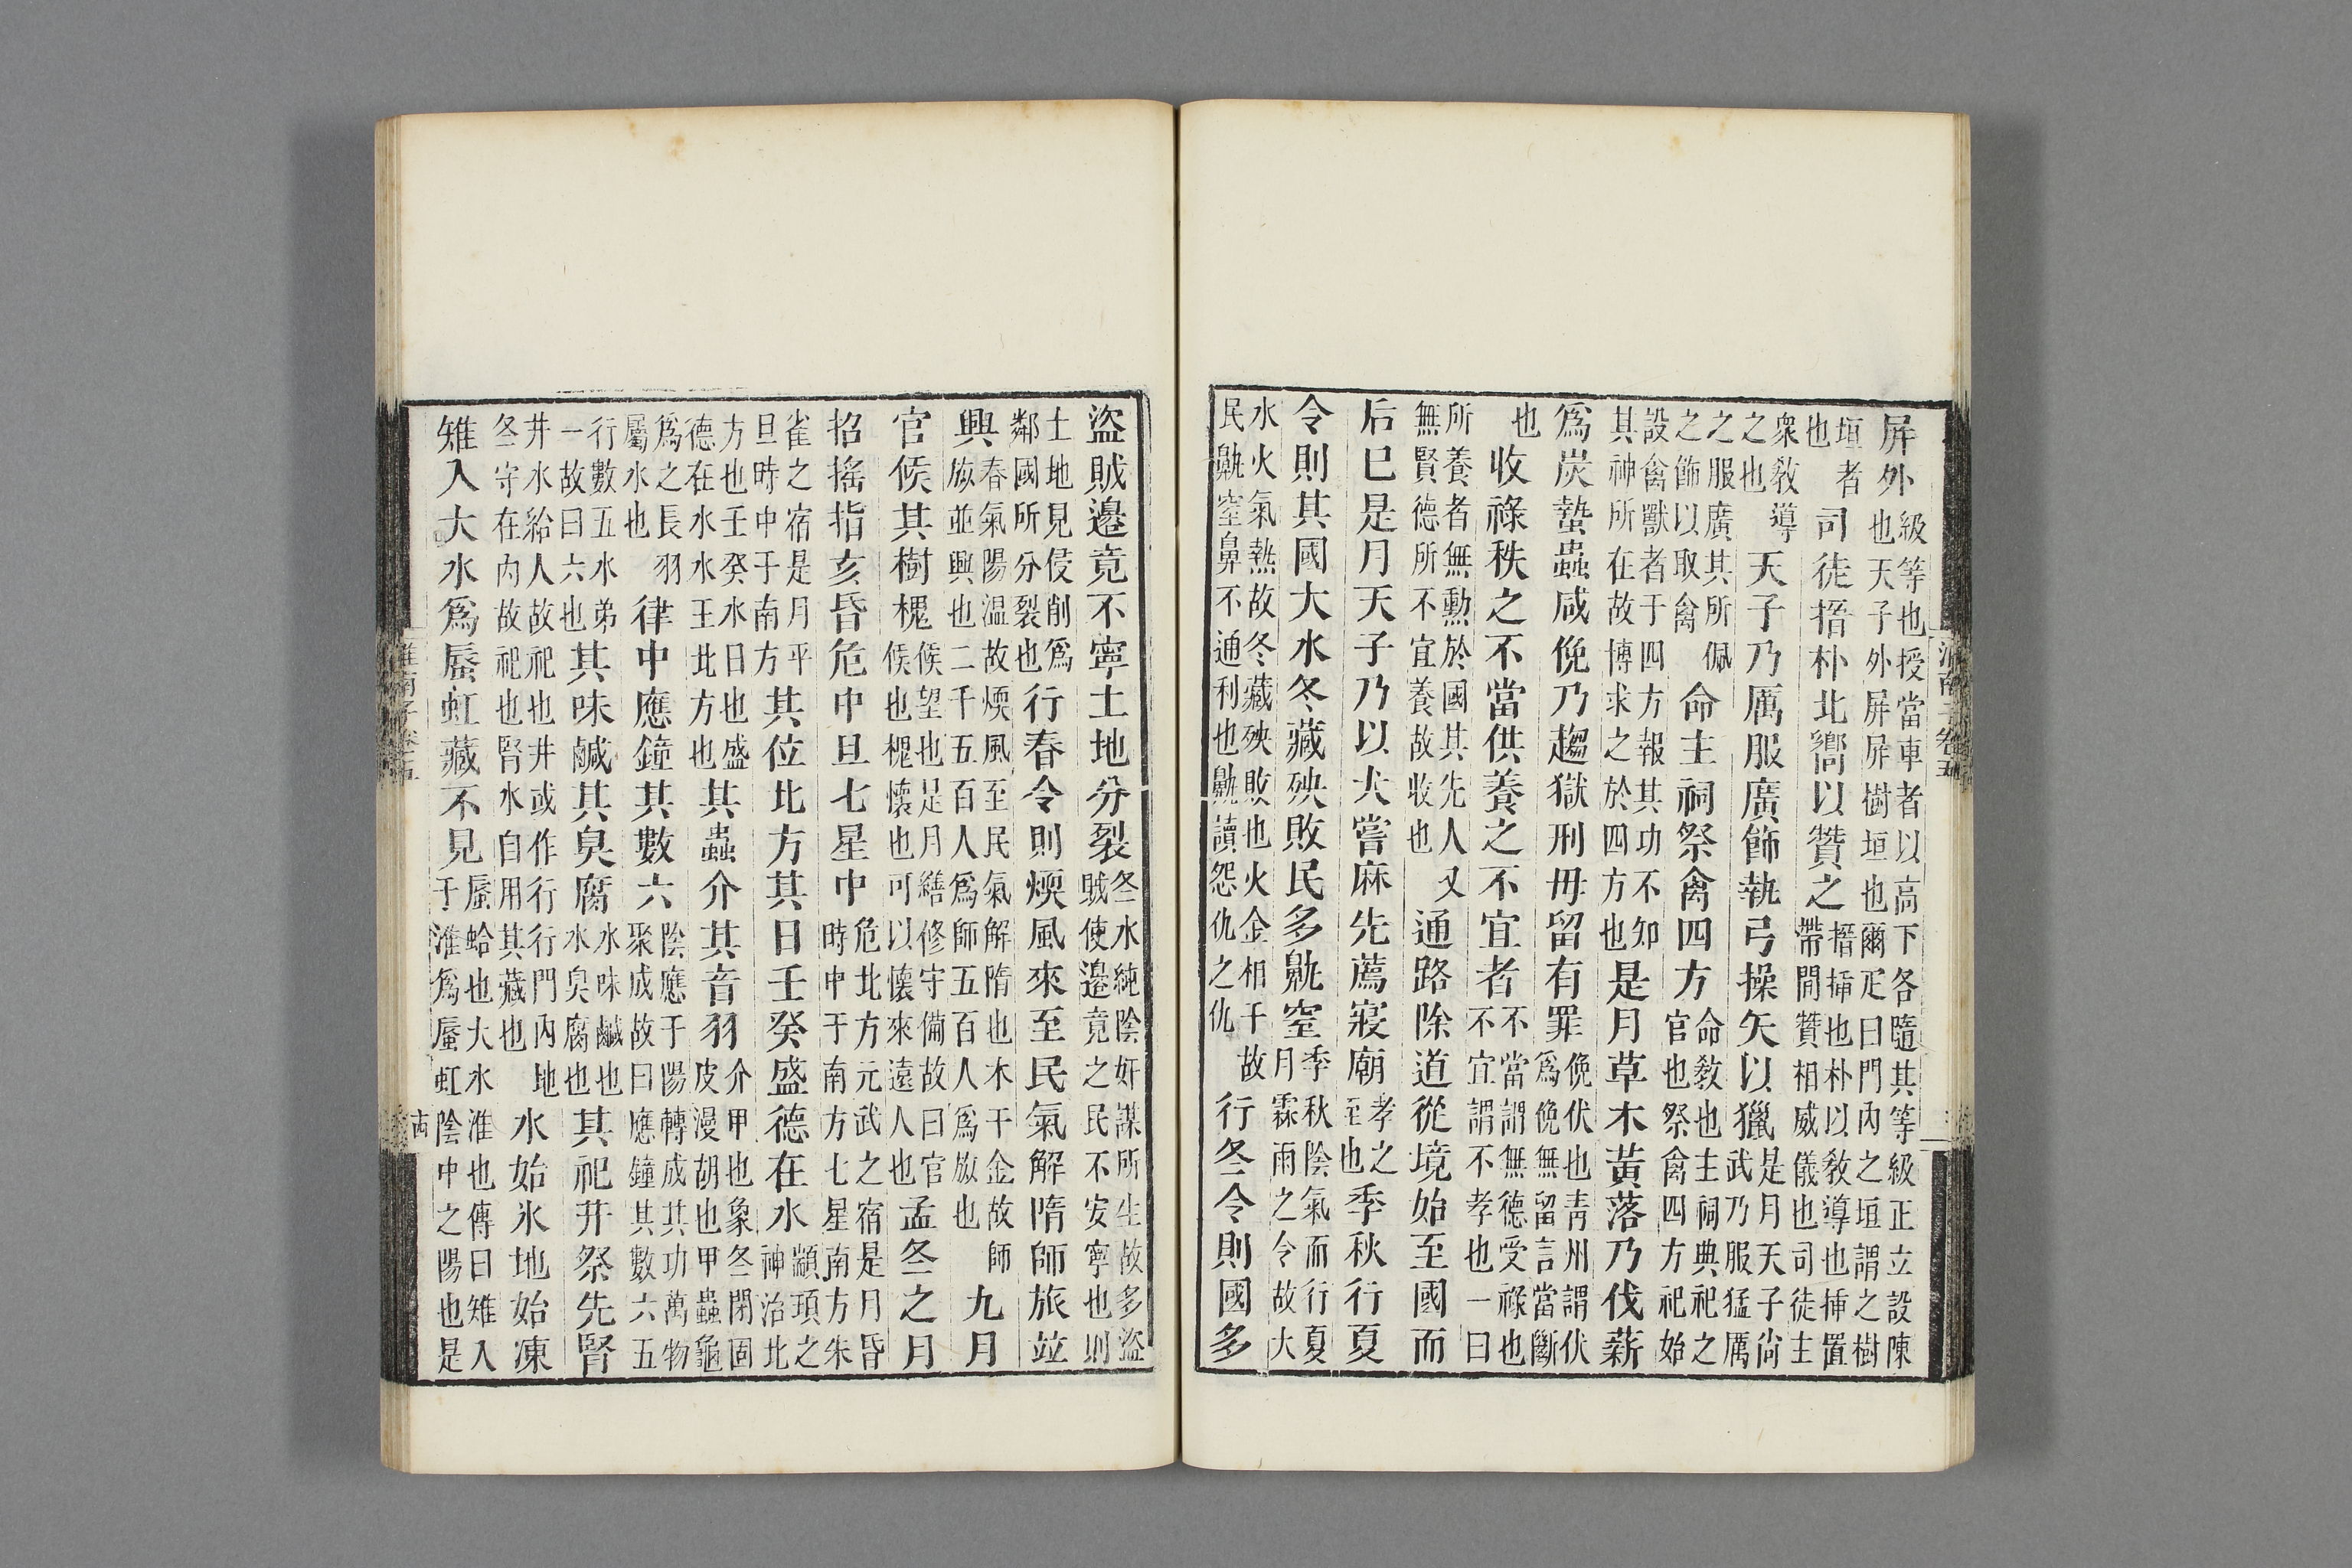 屏外級等也授當車者以高下各隨其等級正立設陳也天子外屏屏樹垣也爾疋曰門內之垣謂之樹
垣者也司徒搢朴北嚮以贊之搢揷也朴以敎導也揷置帶間贊相威儀也司徒主
衆敎導之也天子乃厲服廣飾執弓操矢以獵是月天子尙武乃服猛厲
之服廣其所佩之飾以取禽命主祠祭禽四方命敎也主祠典祀之官也祭禽四方祀始
設禽獸者于四方報其功不知其神所在故博求之於四方也是月草木黃落乃伐薪
爲炭蟄蟲咸俛乃趨獄刑毋留有罪俛伏也靑州謂伏爲俛無留言當斷
也收祿秩之不當供養之不宜者不當謂無德受祿也不宜謂不孝也一曰
所養者無勲於國其先人又無賢德所不宜養故收也通路除道從境始至國而
后巳是月天子乃以犬嘗麻先薦寢廟孝之至也季秋行夏
令則其國大水冬藏殃敗民多鼽窒季秋陰氣而行夏月霖雨之令故大
水火氣熱故冬藏殃敗也火金相干故民鼽窒鼻不通利也鼽讀怨仇之仇行冬令則國多
淮南子卷五
盜賊邉竟不寧土地分裂冬水純陰奸謀所生故多盜賊使邉竟之民不安寧也則
土地見侵削爲鄰國所分裂也行春令則煗風來至民氣解隋師旅竝
興春氣陽温故煗風至民氣解隋也木干金故師旅並興也二千五百人爲師五百人爲旅也九月
官候其樹槐候望也是月繕修守備故曰官候也槐懷也可以懷來遠人也孟冬之月
招搖指亥昏危中旦七星中危北方元武之宿是月昏時中于南方七星南方朱
雀之宿是月平旦時中于南方其位北方其日壬癸盛德在水顓頊之神治北
方也壬癸水日也盛德在水水王北方也其蟲介其音羽介甲也象冬閉固皮漫胡也甲蟲龜
爲之長羽屬水也律中應鐘其數六陰應于陽轉成其功萬物聚成故曰應鐘其數六五
行數五水第一故曰六也其味鹹其臭腐水味鹹也水臭腐也其祀井祭先腎
井水給人故祀也井或作行行門內地冬守在內故祀也腎水自用其藏也水始氷地始凍
雉入大水爲蜃虹藏不見蜃蛤也大水淮也傳曰雉入于淮爲蜃虹陰中之陽也是
淮南子卷五